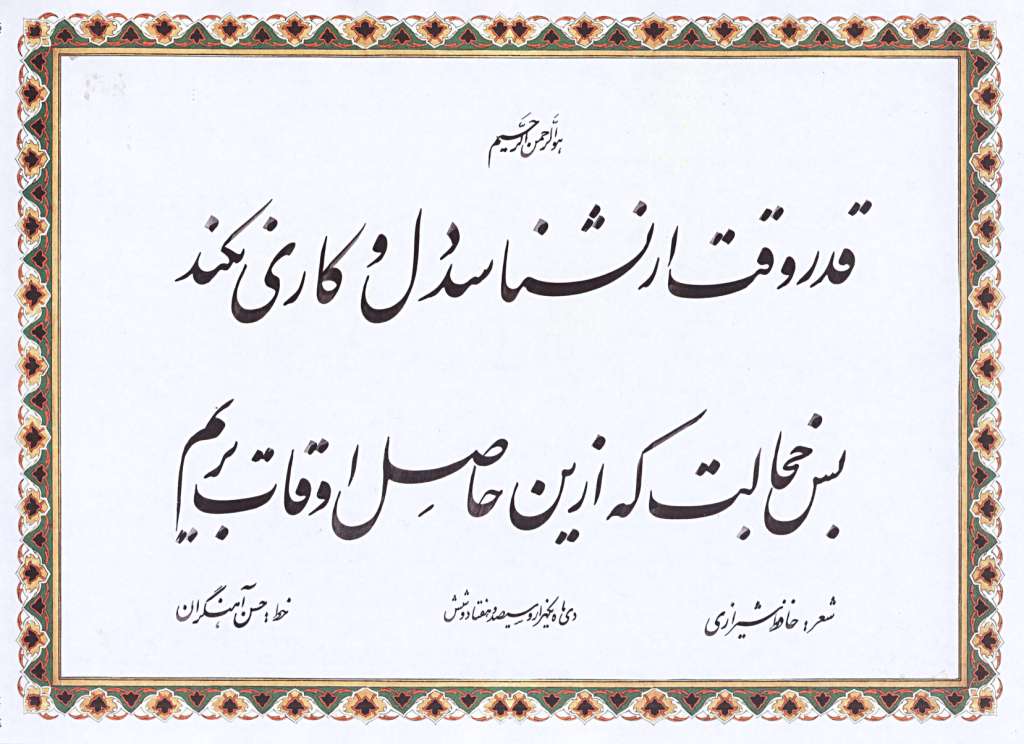 هوالرحمن الرحیم
قدر وقت ار نشناسد دل و کاری نکند
بس خجالت که ازین حاصل اوقات بریم
شعر: حافظ شیرازی
دی ماه یکهزار و سیصد و هفتاد و شش
خط: حسن آهنگران